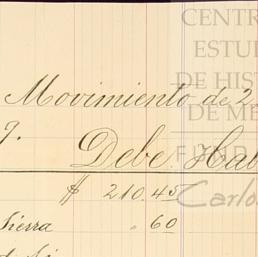 CENTR
ESTU
DE HIST
DE MÉ
FUND
Carlo
Movimiento de 2
g.
Debe Hab
$ 210.45
Sierra " 60